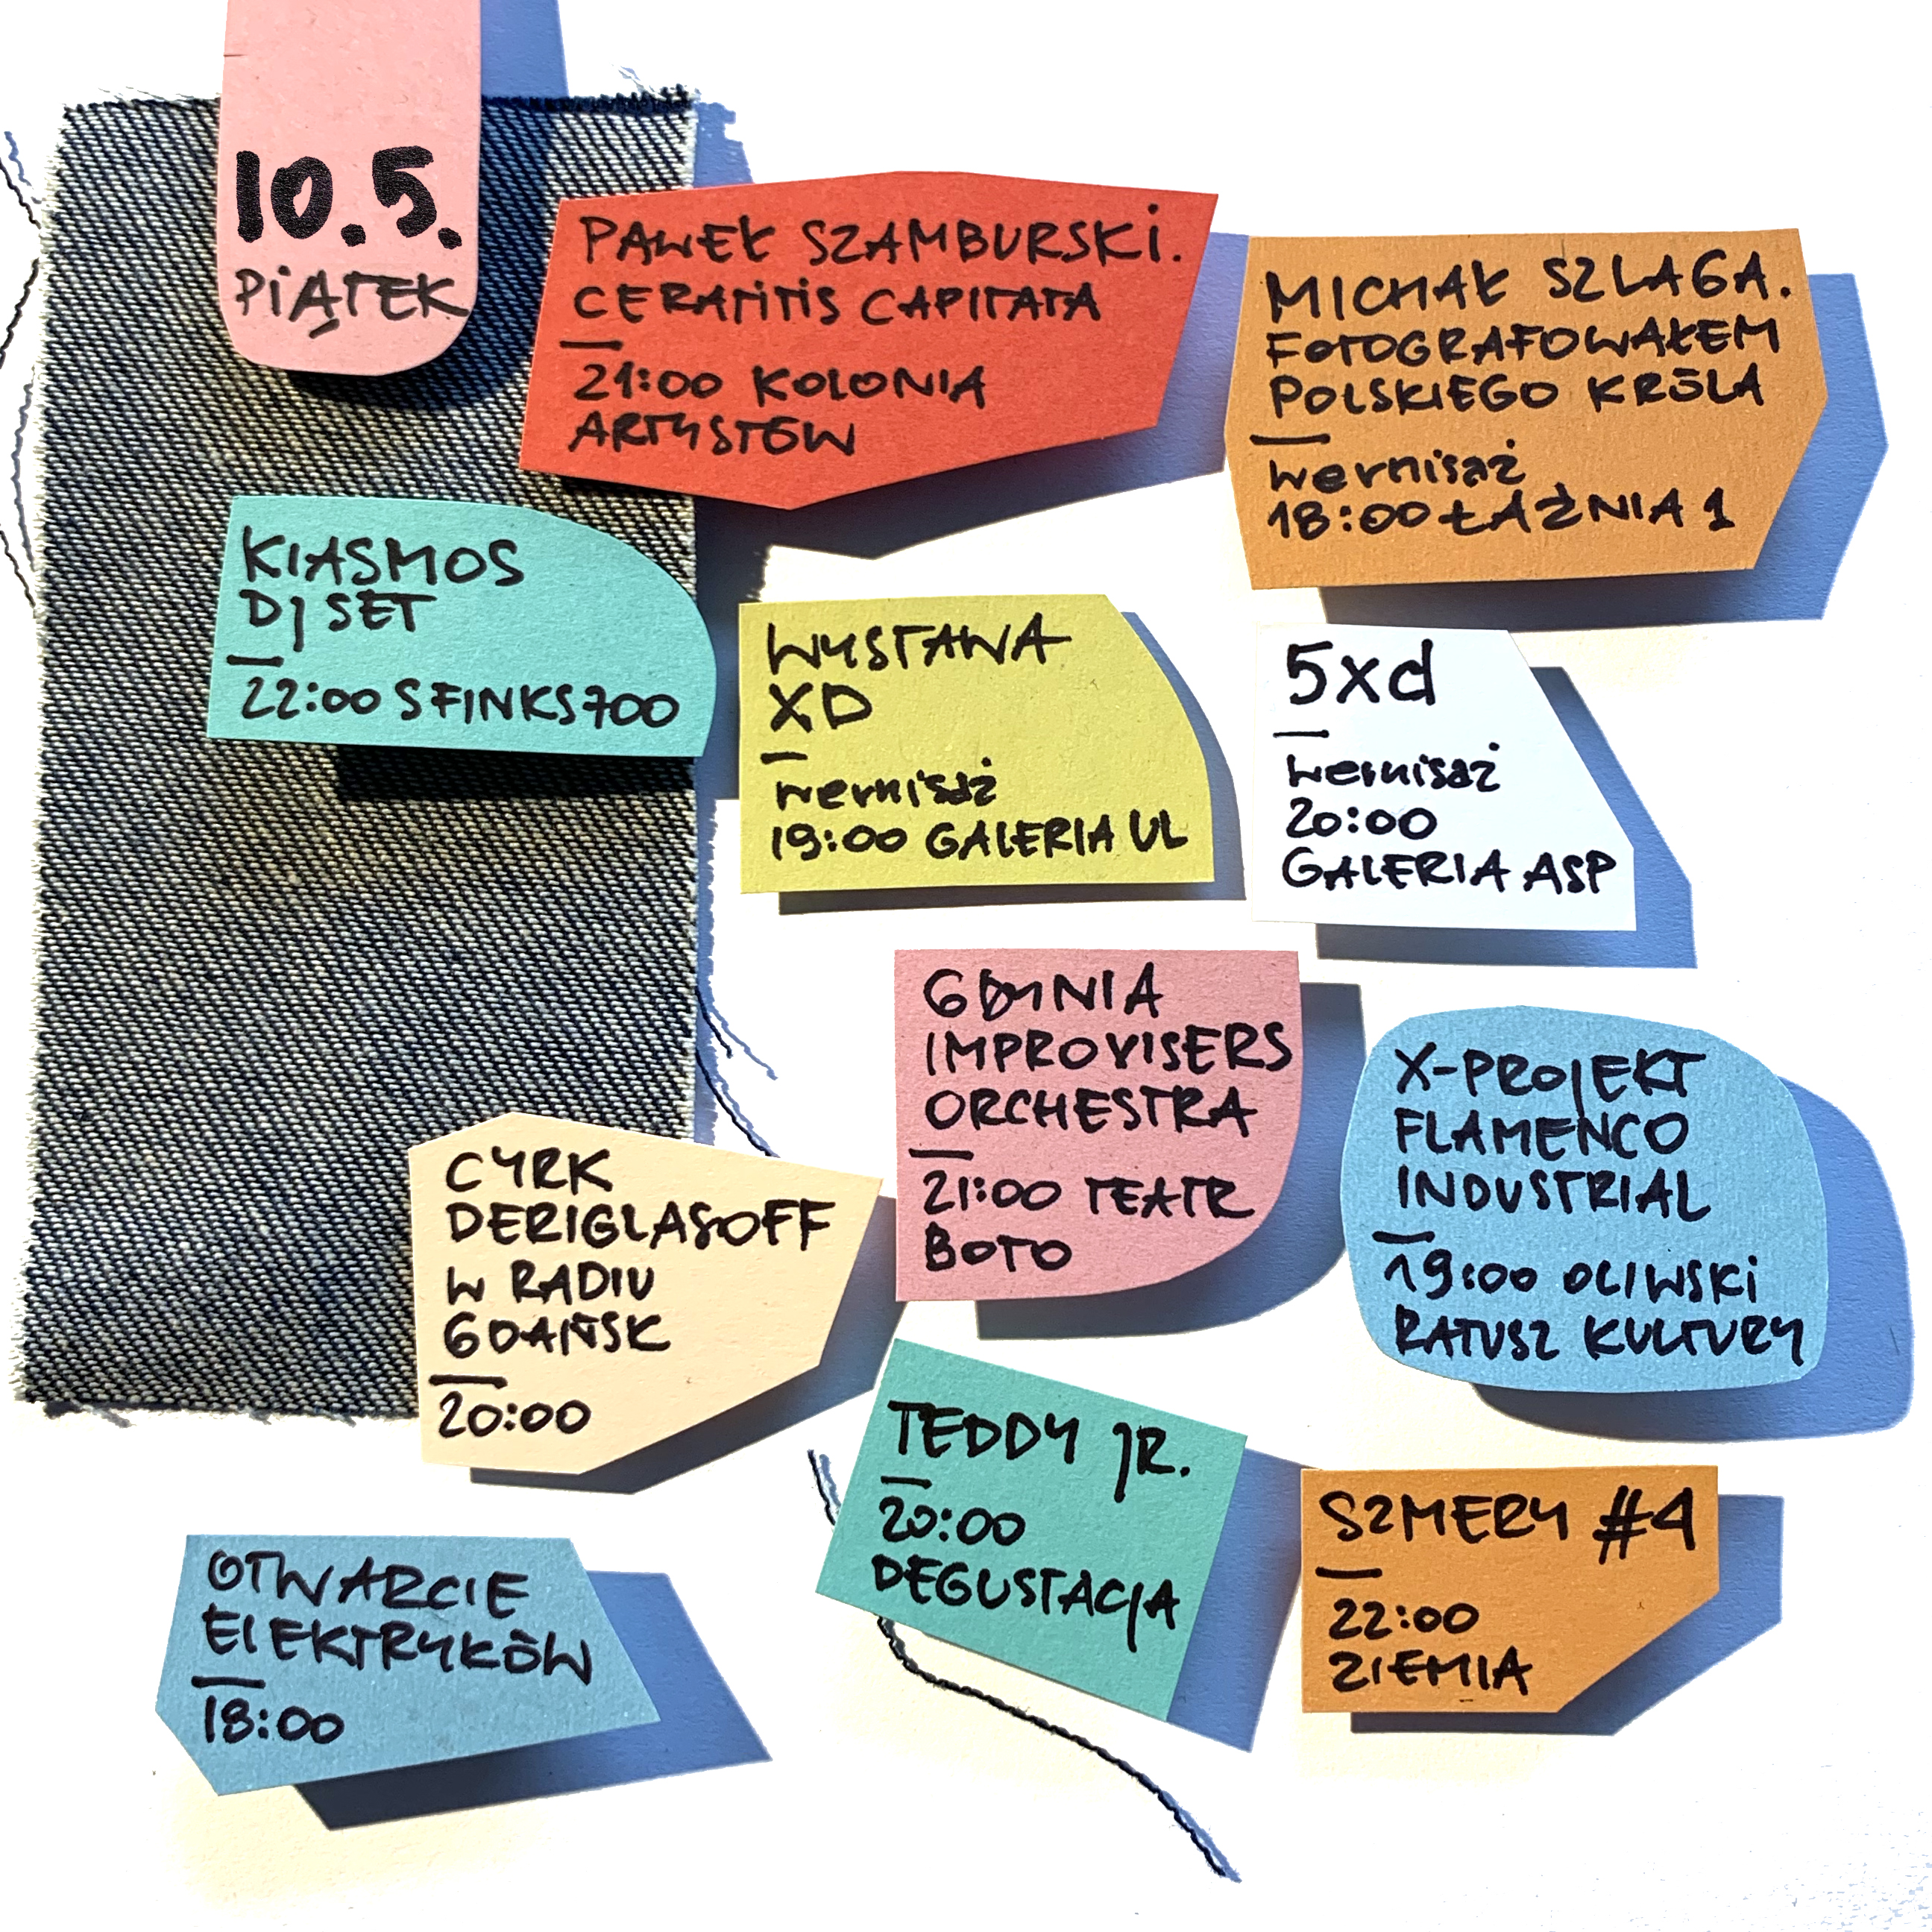 10.5.
PIĄTEK
PAWEŁ SZAMBURSKI.
CERATITIS CAPITATA
21:00 KOLONIA
ARTYSTÓW
MICHAŁ SZLAGA.
FOTOGRAFOWAŁEM
POLSKIEGO KRÓLA
wernisaż
18:00 ŁAŹNIA 1
KIASMOS
DJ SET
22:00 SFINKS700
WYSTAWA
XD
wernisaż
19:00 GALERIA UL
5xd
wernisaż
20:00
GALERIA ASP
GDYNIA
IMPROVISERS
ORCHESTRA
21:00 TEATR
BOTO
X-PROJEKT
FLAMENCO
INDUSTRIAL
19:00 OLIWSKI
RATUSZ KULTURY
CYRK
DERIGLASOFF
W RADIU
GDAŃSK
20:00
TEDDY JR.
20:00
DEGUSTACJA
SZMERY #4
22:00
ZIEMIA
OTWARCIE
ELEKTRYKÓW
18:00